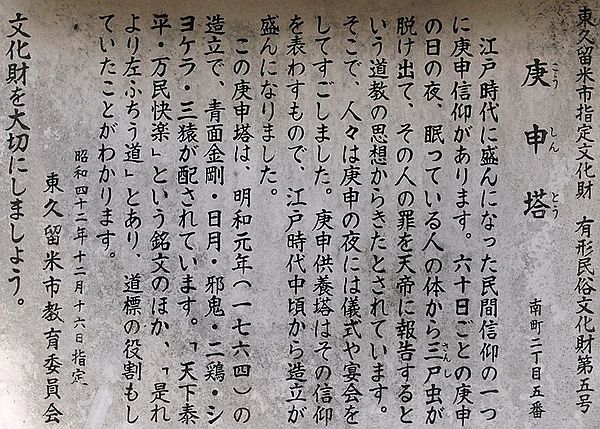 東久留米市指定文化財　有形民俗文化財第五号
庚申塔
こうしんとう
南町二丁目五番
江戸時代に盛んになった民間信仰の一つ
に庚申信仰があります。六十日ごとの庚申
の日の夜、眠っている人の体から三尸虫が
さんし
脱け出て、その人の罪を天帝に報告すると
いう道教の思想からきたとされています。
そこで、人々は庚申の夜には儀式や宴会を
してすごしました。庚申供養塔はその信仰
を表わすもので、江戸時代中頃から造立が
盛んになりました。
この庚申塔は、明和元年(一七六四)の
造立で、青面金剛・日月・邪鬼・二鶏・シ
ヨケラ・三猿が配されています。「天下泰
平・万民快楽」という銘文のほか、「是れ
より左ふちう道」とあり、道標の役割もし
ていたことがわかります。
昭和四十二年十二月十六日指定
東久留米市教育委員会
文化財を大切にしましょう。